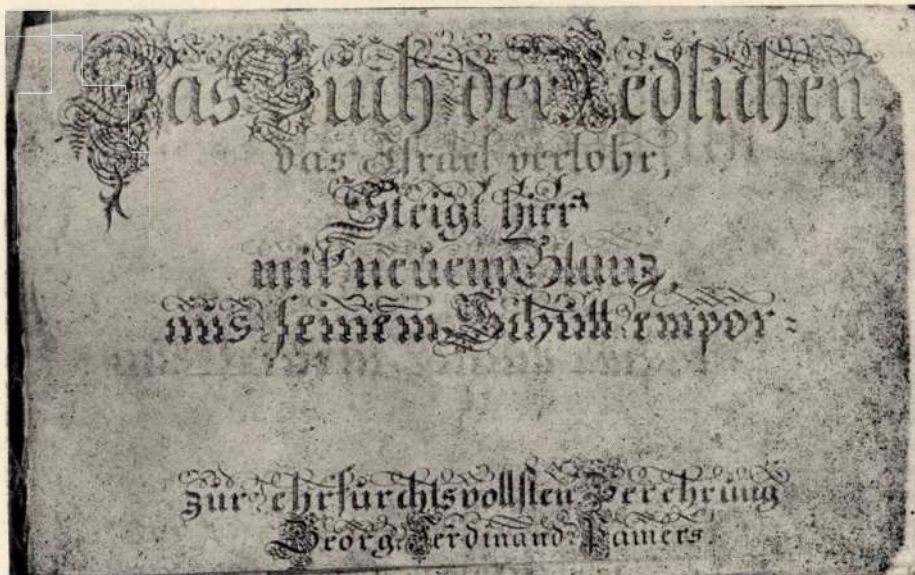 Das Buch der Redlichen,
das Israel verlohr,
Steigt hier
mit neuem Glanz,
aus seinem Schutt empor=
Zur ehrfurchtsvollsten Verehrung
Georg Ferdinand Pamers